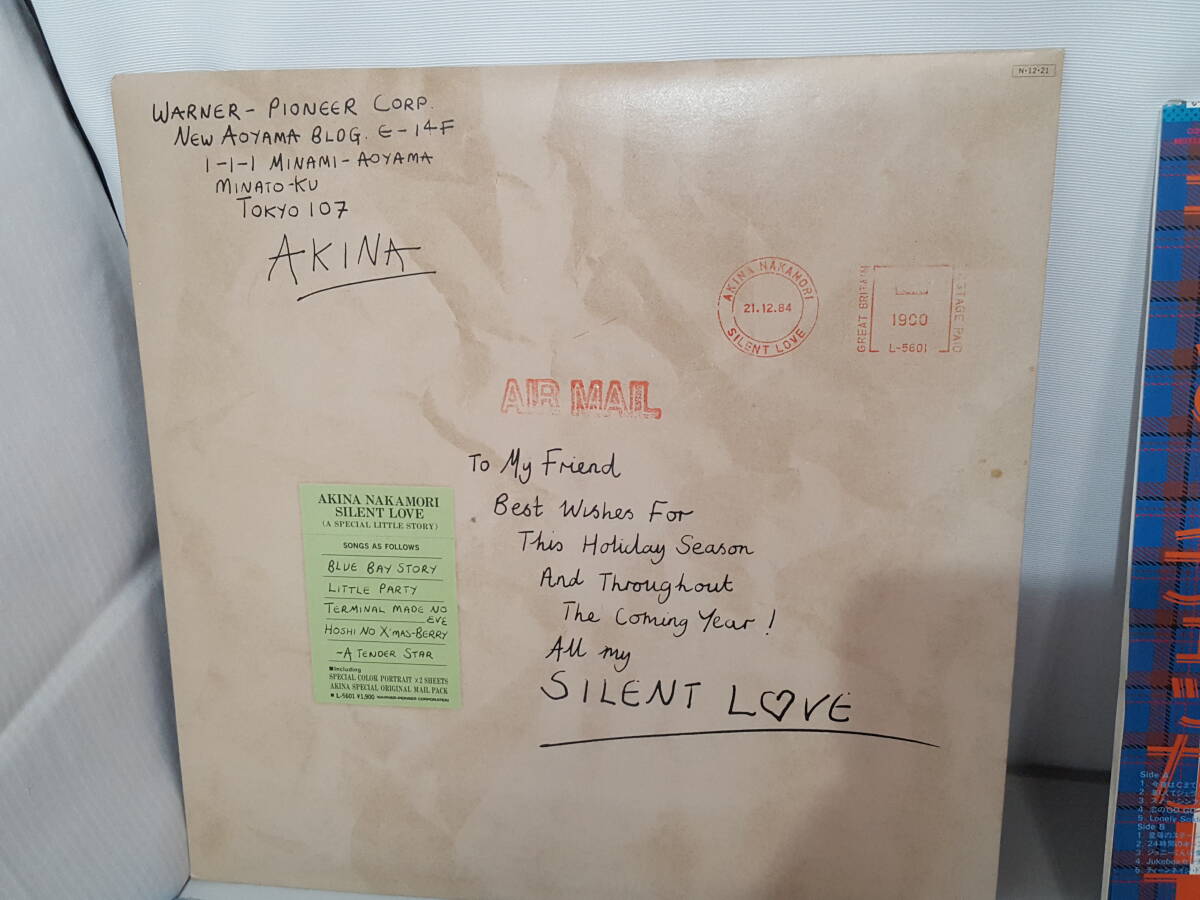 N・12・21
WARNER - PIONEER CORP.
NEW AOYAMA BLDG. E-14F
1-1-1 MINAMI-AOYAMA
MINATO-KU
TOKYO 107
AKINA
AKINA NAKAMORI
21.12.84
SILENT LOVE
GREAT BRITAIN
1900
L-5601
STAGE PAID
AIR MAIL
To My Friend
Best Wishes For
This Holiday Season
And Throughout
The Coming Year!
All my
SILENT LOVE
AKINA NAKAMORI
SILENT LOVE
(A SPECIAL LITTLE STORY)
SONGS AS FOLLOWS
BLUE BAY STORY
LITTLE PARTY
TERMINAL MADE NO
EVE
HOSHI NO X'MAS-BERRY
-A TENDER STAR
■Including
SPECIAL COLOR PORTRAIT ×2 SHEETS
AKINA SPECIAL ORIGINAL MAIL PACK
● L-5601 ¥1,900 WARNER-PIONEER CORPORATION
Side A
1.
2.
3.
4.
5. Lonely
Side B
1.
2. 24時間の
3. ジョニーくん
4. Jukebox
5.